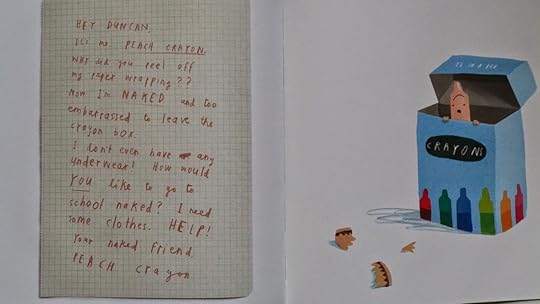 HEY DUNCAN,
It's me, PEACH CRAYON.
WHY did you peel off
my paper wrapping??
Now I'm NAKED and too
embarrassed to leave the
crayon box.
I don't even have any
underwear! How would
YOU like to go to
school naked? I need
some clothes. HELP!
Your naked friend,
PEACH Crayon
CRAYONS